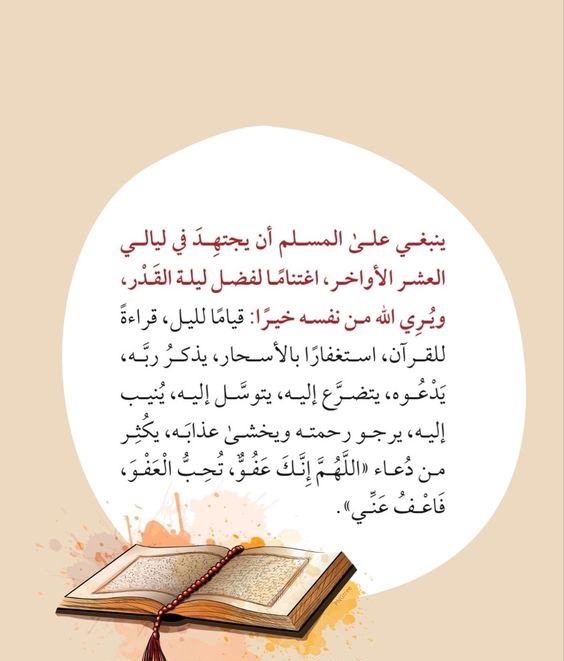 ينبغي علىٰ المسلم أن يجتهِدَ في ليالي
العشر الأواخر، اغتنامًا لفضل ليلة القَدْر،
ويُرِي الله من نفسه خيرًا: قيامًا لليل، قراءةً
للقرآن، استغفارًا بالأسحار، يذكرُ ربَّه،
يَدْعُوه، يتضرَّع إليه، يتوسَّل إليه، يُنيب
إليه، يرجو رحمته ويخشىٰ عذابَه، يكثِر
من دُعاء «اللَّهُمَّ إِنَّكَ عَفُوٌّ، تُحِبُّ الْعَفْوَ،
فَاعْفُ عَنِّي».